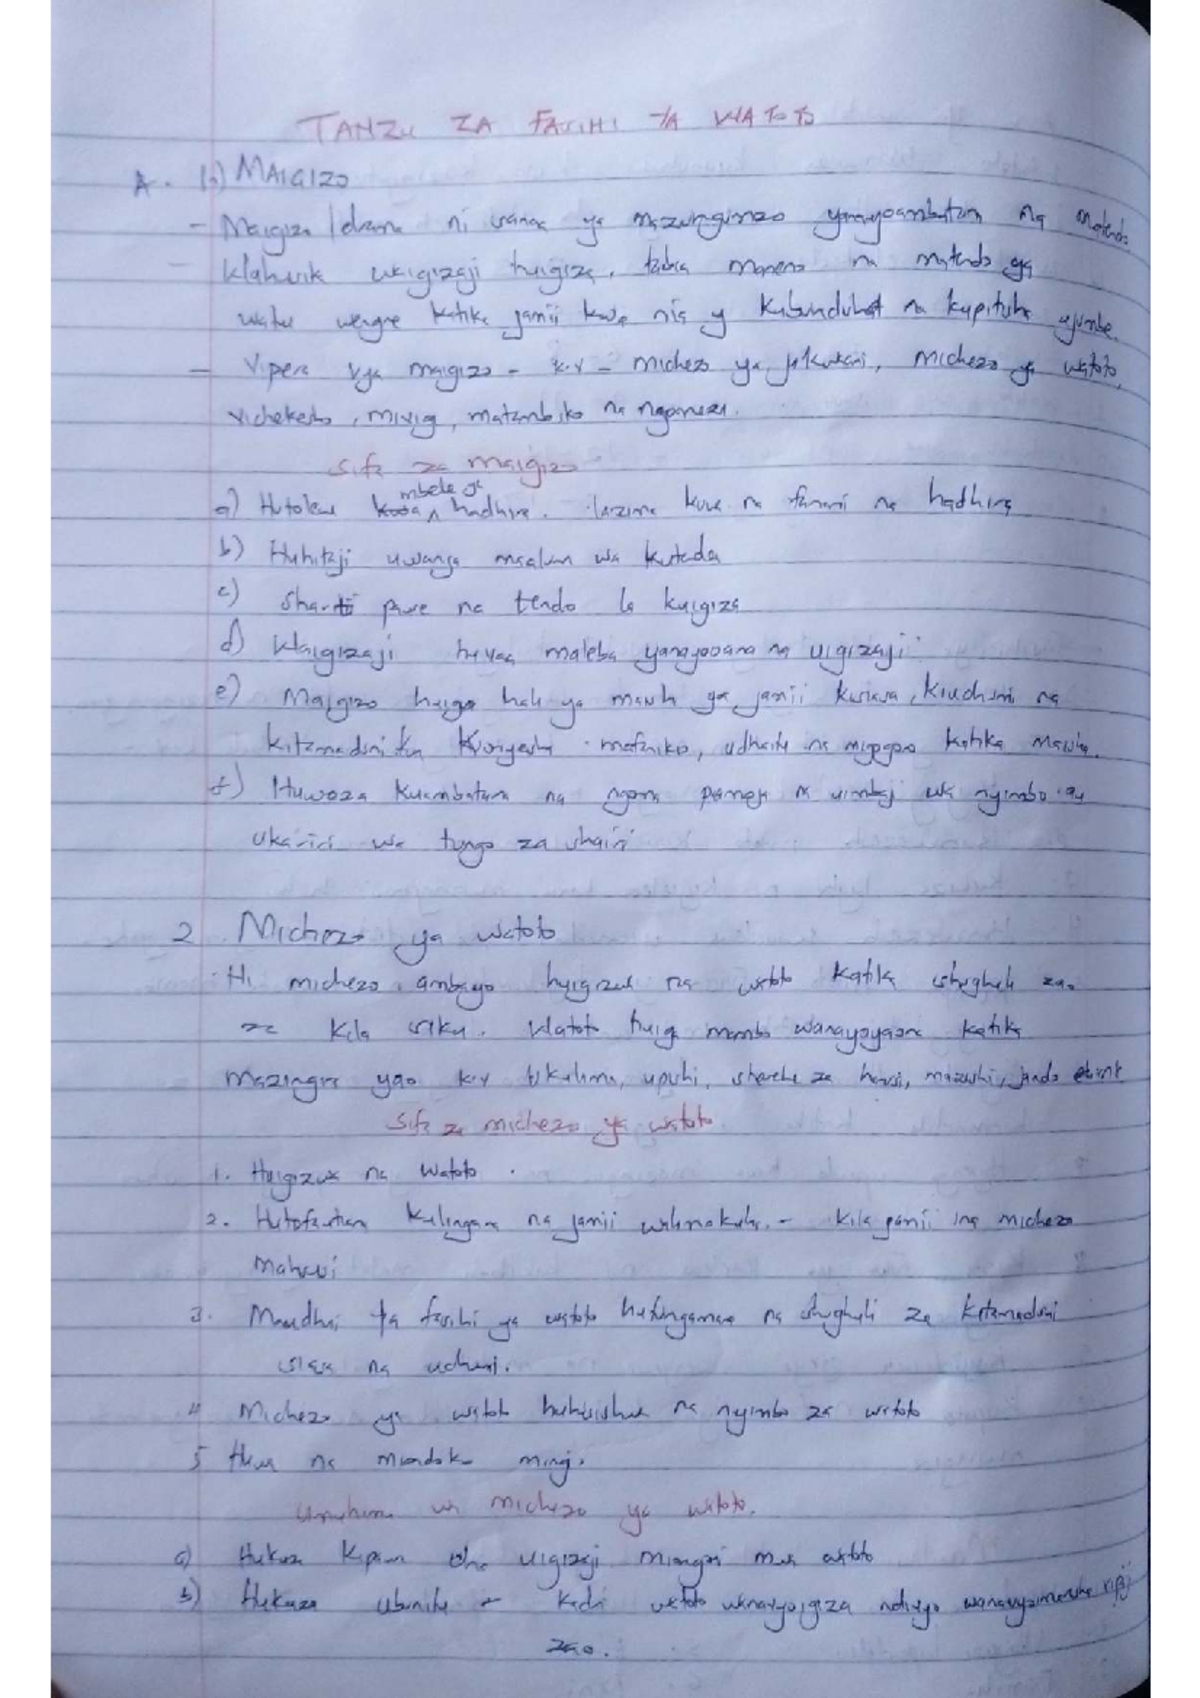 TANZU ZA FASIHI YA WATOTO
A. (b) MAIGIZO
- Maigizo / drama ni sanaa ya mazungumzo yanayoambatana na matendo.
- Wahusika waigizaji huigiza, tabia maneno na matendo ya
watu wengine katika jamii kwa nia y kuburudisha na kupitisha ujumbe.
- Vipera vya maigizo - k.v - michezo ya jukwaani, michezo ya watoto,
vichekesho, miviga, matambiko na ngonjera.
Sifa za maigizo
mbele ya
a) Hutolewa hadhira. lazima kuwe na fanani na hadhira
b) Huhitaji uwanja maalum wa kutenda
c) Sharti pawe na tendo la kuigiza
d) Waigizaji huvaa maleba yanayooana na uigizaji
e) Maigizo huiga hali ya maisha ya jamii kisiasa, kiuchumi na
kitamaduni kuonyesha mafaniko, udhaifu na migogoro katika maisha.
f) Huweza kuambatana na ngoma pamoja na uimbaji wa nyimbo au
ukariri wa tungo za shairi
2. Michezo ya watoto
- Hi michezo ambayo huigizwa na watoto katika shughuli zao
za kila siku. Watoto huiga mambo wanayoyaona katika
mazingira yao k.v ukulima, upishi, sherehe za harusi, mazishi, jando
Sifa za michezo ya watoto
1. Huigizwa na watoto.
2. Hutofautiana kulingana na jamii - kila jamii ina michezo
mahsusi
3. Maudhui ya fasihi ya watoto hufungamana na shughuli za kitamaduni
siasa na uchumi.
4 Michezo ya watoto huhusishwa na nyimbo za watoto
5 Huwa na miondoko mingi.
Umuhimu wa michezo ya watoto.
a) Hukuza kipawa cha uigizaji miongoni mwa watoto
b) Hukuza ubunifu - kadri watoto wanavyoigiza ndivyo wanavyoimarisha
zao.